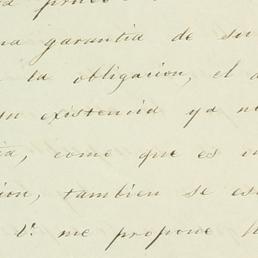 una garantia de su
la obligacion, el a
su existencia ya n
ia, como que es in
cion, tambien se es
V. me propone h